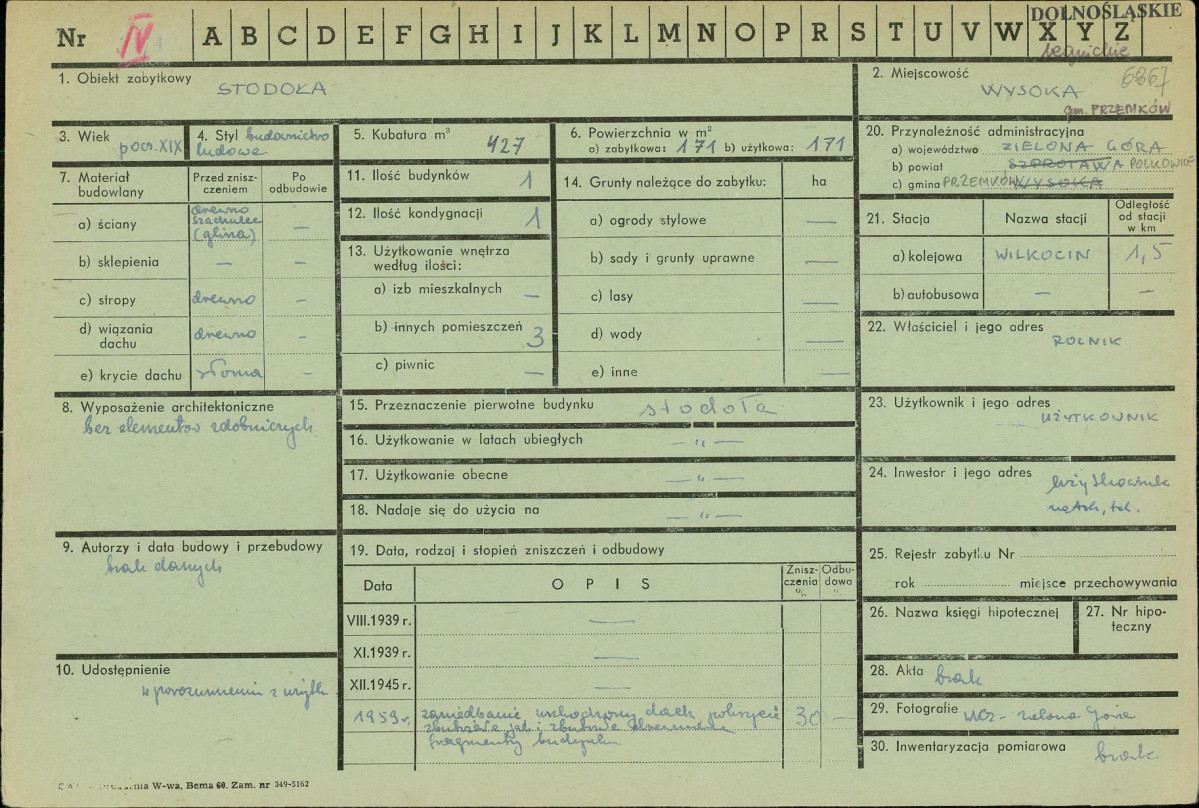 DOLNOŚLĄSKIE
Nr IV A B C D E F G H I J K L M N O P R S T U V W X Y Z
legnickie
1. Obiekt zabytkowy
STODOŁA
2. Miejscowość 6867
WYSOKA
gm. PRZEMKÓW
3. Wiek
pocz. XIX
4. Styl budownictwo
ludowe
5. Kubatura m³
427
6. Powierzchnia w m²
a) zabytkowa: 171 b) użytkowa: 171
20. Przynależność administracyjna
a) województwo ZIELONA GÓRA
b) powiat SZPROTAWA POLKOWICE
c) gmina PRZEMKÓW WYSOKA
7. Materiał budowlany
Przed zniszczeniem
Po odbudowie
a) ściany drewno szachulec (glina) –
b) sklepienia – –
c) stropy drewno –
d) wiązania dachu drewno –
e) krycie dachu słoma –
11. Ilość budynków 1
12. Ilość kondygnacji 1
13. Użytkowanie wnętrza
według ilości:
a) izb mieszkalnych –
b) innych pomieszczeń 3
c) piwnic –
14. Grunty należące do zabytku: ha
a) ogrody stylowe —
b) sady i grunty uprawne —
c) lasy —
d) wody —
e) inne —
21. Stacja Nazwa stacji Odległość od stacji w km
a) kolejowa WILKOCIN 1,5
b) autobusowa – –
22. Właściciel i jego adres
ROLNIK
8. Wyposażenie architektoniczne
bez elementów zdobniczych
15. Przeznaczenie pierwotne budynku stodoła
16. Użytkowanie w latach ubiegłych — " —
17. Użytkowanie obecne — " —
18. Nadaje się do użycia na — " —
23. Użytkownik i jego adres
UŻYTKOWNIK
24. Inwestor i jego adres
użytkownik
9. Autorzy i data budowy i przebudowy
brak danych
19. Data, rodzaj i stopień zniszczeń i odbudowy
Data O P I S Zniszczenia % Odbudowa %
VIII.1939 r. —
XI.1939 r. —
XII.1945 r.
1959 r. zaniedbanie wschodniej dach pokrycie 30 –
fragmenty budynku
25. Rejestr zabytku Nr
rok miejsce przechowywania
26. Nazwa księgi hipotecznej
27. Nr hipoteczny
10. Udostępnienie
w porozumieniu z użytk.
28. Akta brak
29. Fotografie WKZ - Zielona Góra
30. Inwentaryzacja pomiarowa
brak
W-wa, Bema 60. Zam. nr 349-5162